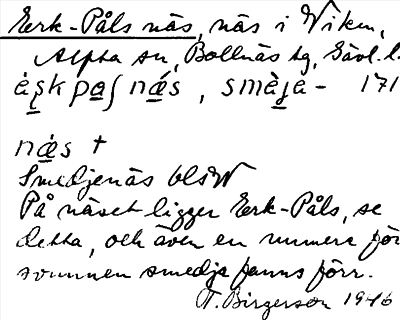 Eerk-Påls näs, näs i Viken,
Alfta sn, Bollnäs tg, Gävl. l.
näs, smeja- 171
näs +
Smedjenäs blsW
På näset ligger Eerk-Påls, se
detta, och även en numera för
svunnen smedja fanns förr.
T. Birgerson 1946